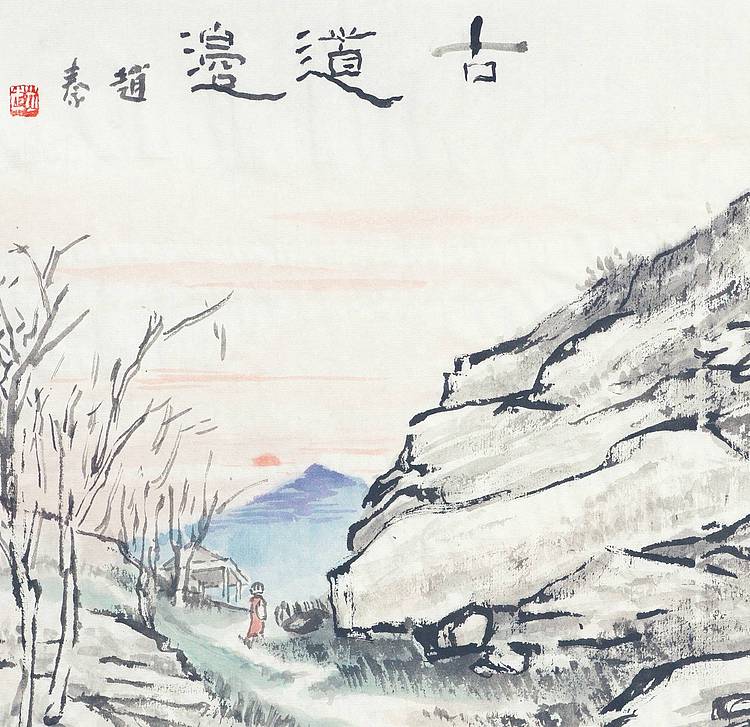 古道邊
趙秦